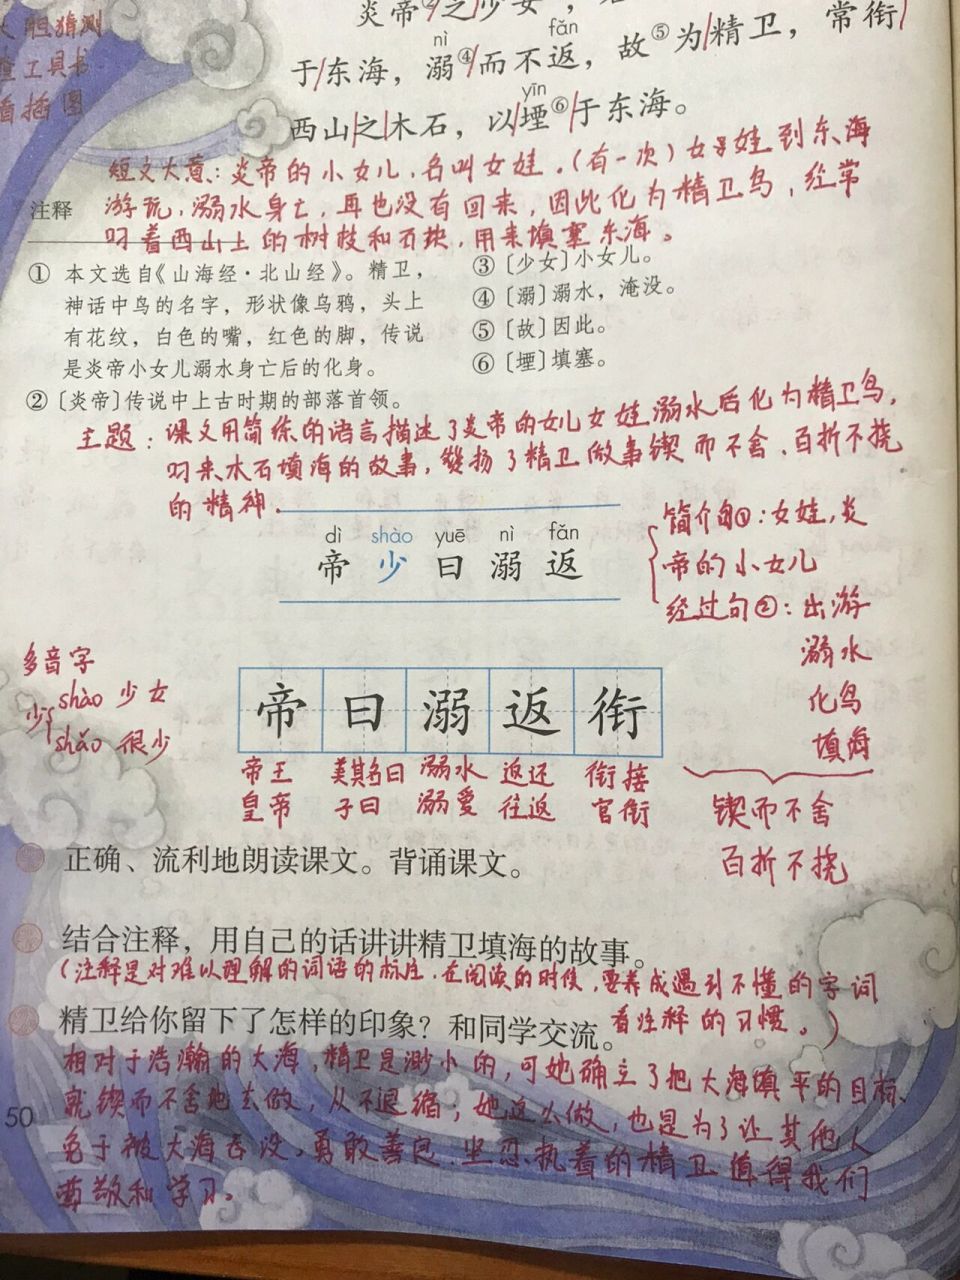 大胆猜测
查工具书
看插图
炎帝②/之/少女
nì fǎn
于/东海，溺④/而不返，故⑤为/精卫，常衔/
yīn
西山/之/木石，以/堙⑥/于东海。
短文大意：炎帝的小女儿，名叫女娃。（有一次）女娃到东海
游玩，溺水身亡，再也没有回来，因此化为精卫鸟，经常
叼着西山上的树枝和石块，用来填塞东海。
注释
① 本文选自《山海经·北山经》。精卫，
神话中鸟的名字，形状像乌鸦，头上
有花纹，白色的嘴，红色的脚，传说
是炎帝小女儿溺水身亡后的化身。
② 〔炎帝〕传说中上古时期的部落首领。
③ 〔少女〕小女儿。
④ 〔溺〕溺水，淹没。
⑤ 〔故〕因此。
⑥ 〔堙〕填塞。
主题：课文用简练的语言描述了炎帝的女儿女娃溺水后化为精卫鸟，
叼来木石填海的故事，颂扬了精卫做事锲而不舍、百折不挠
的精神.
dì shào yuē nì fǎn
帝 少 曰 溺 返
简介句①：女娃，炎
帝的小女儿
经过句②：出游
溺水
化鸟
填海
锲而不舍
百折不挠
多音字
少 shào 少女
shǎo 很少
帝 曰 溺 返 衔
帝王 美其名曰 溺水 返还 衔接
皇帝 子曰 溺爱 往返 官衔
正确、流利地朗读课文。背诵课文。
结合注释，用自己的话讲讲精卫填海的故事。
（注释是对难以理解的词语的标注.在阅读的时候,要养成遇到不懂的字词
看注释的习惯。）
精卫给你留下了怎样的印象？和同学交流。
相对于浩瀚的大海，精卫是渺小的，可她确立了把大海填平的目标、
就锲而不舍地去做，从不退缩；她这么做，也是为了让其他人
免于被大海吞没，勇敢善良、坚忍执着的精卫值得我们
尊敬和学习。
50